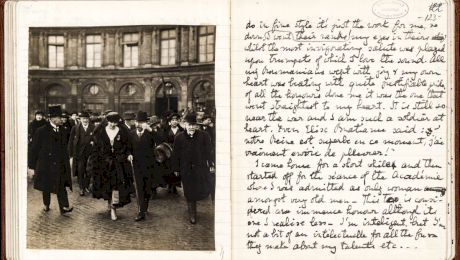 -123-
do in fine style it's just the work for me, so
down I went their ranks my eyes in theirs
whilst the most invigorating salute was played
upon trumpets of which I love the sound. All
my Roumanians wept with joy & my own
heart was beating with quite justifiable pride,
of all the honours done me it was the one that
went straightest to my heart. It is still so
near the war and I am such a soldier at
heart. Even Elise Bratianu said :
notre Reine est superbe en ce moment, j'ai
vraiment envie de pleurer!
I came home for a short while and then
started off for the séance of the Académie
where I was admitted as only woman
amongst very old men - This is consi-
dered an immense honour although its
one I realise less - I'm intelligent, but I'm
not a bit of an intellectuelle for all the fuss
they make about my talents etc...